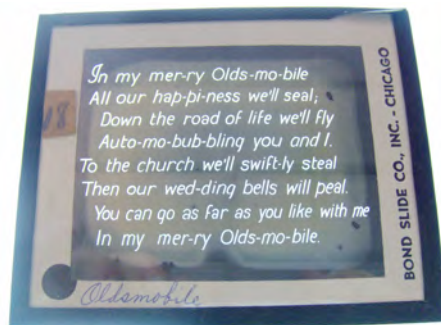 In my mer-ry Olds-mo-bile
All our hap-pi-ness we'll seal;
Down the road of life we'll fly
Auto-mo-bub-bling you and I.
To the church we'll swift-ly steal
Then our wed-ding bells will peal.
You can go as far as you like with me
In my mer-ry Olds-mo-bile.
BOND SLIDE CO., INC. - CHICAGO
Oldsmobile